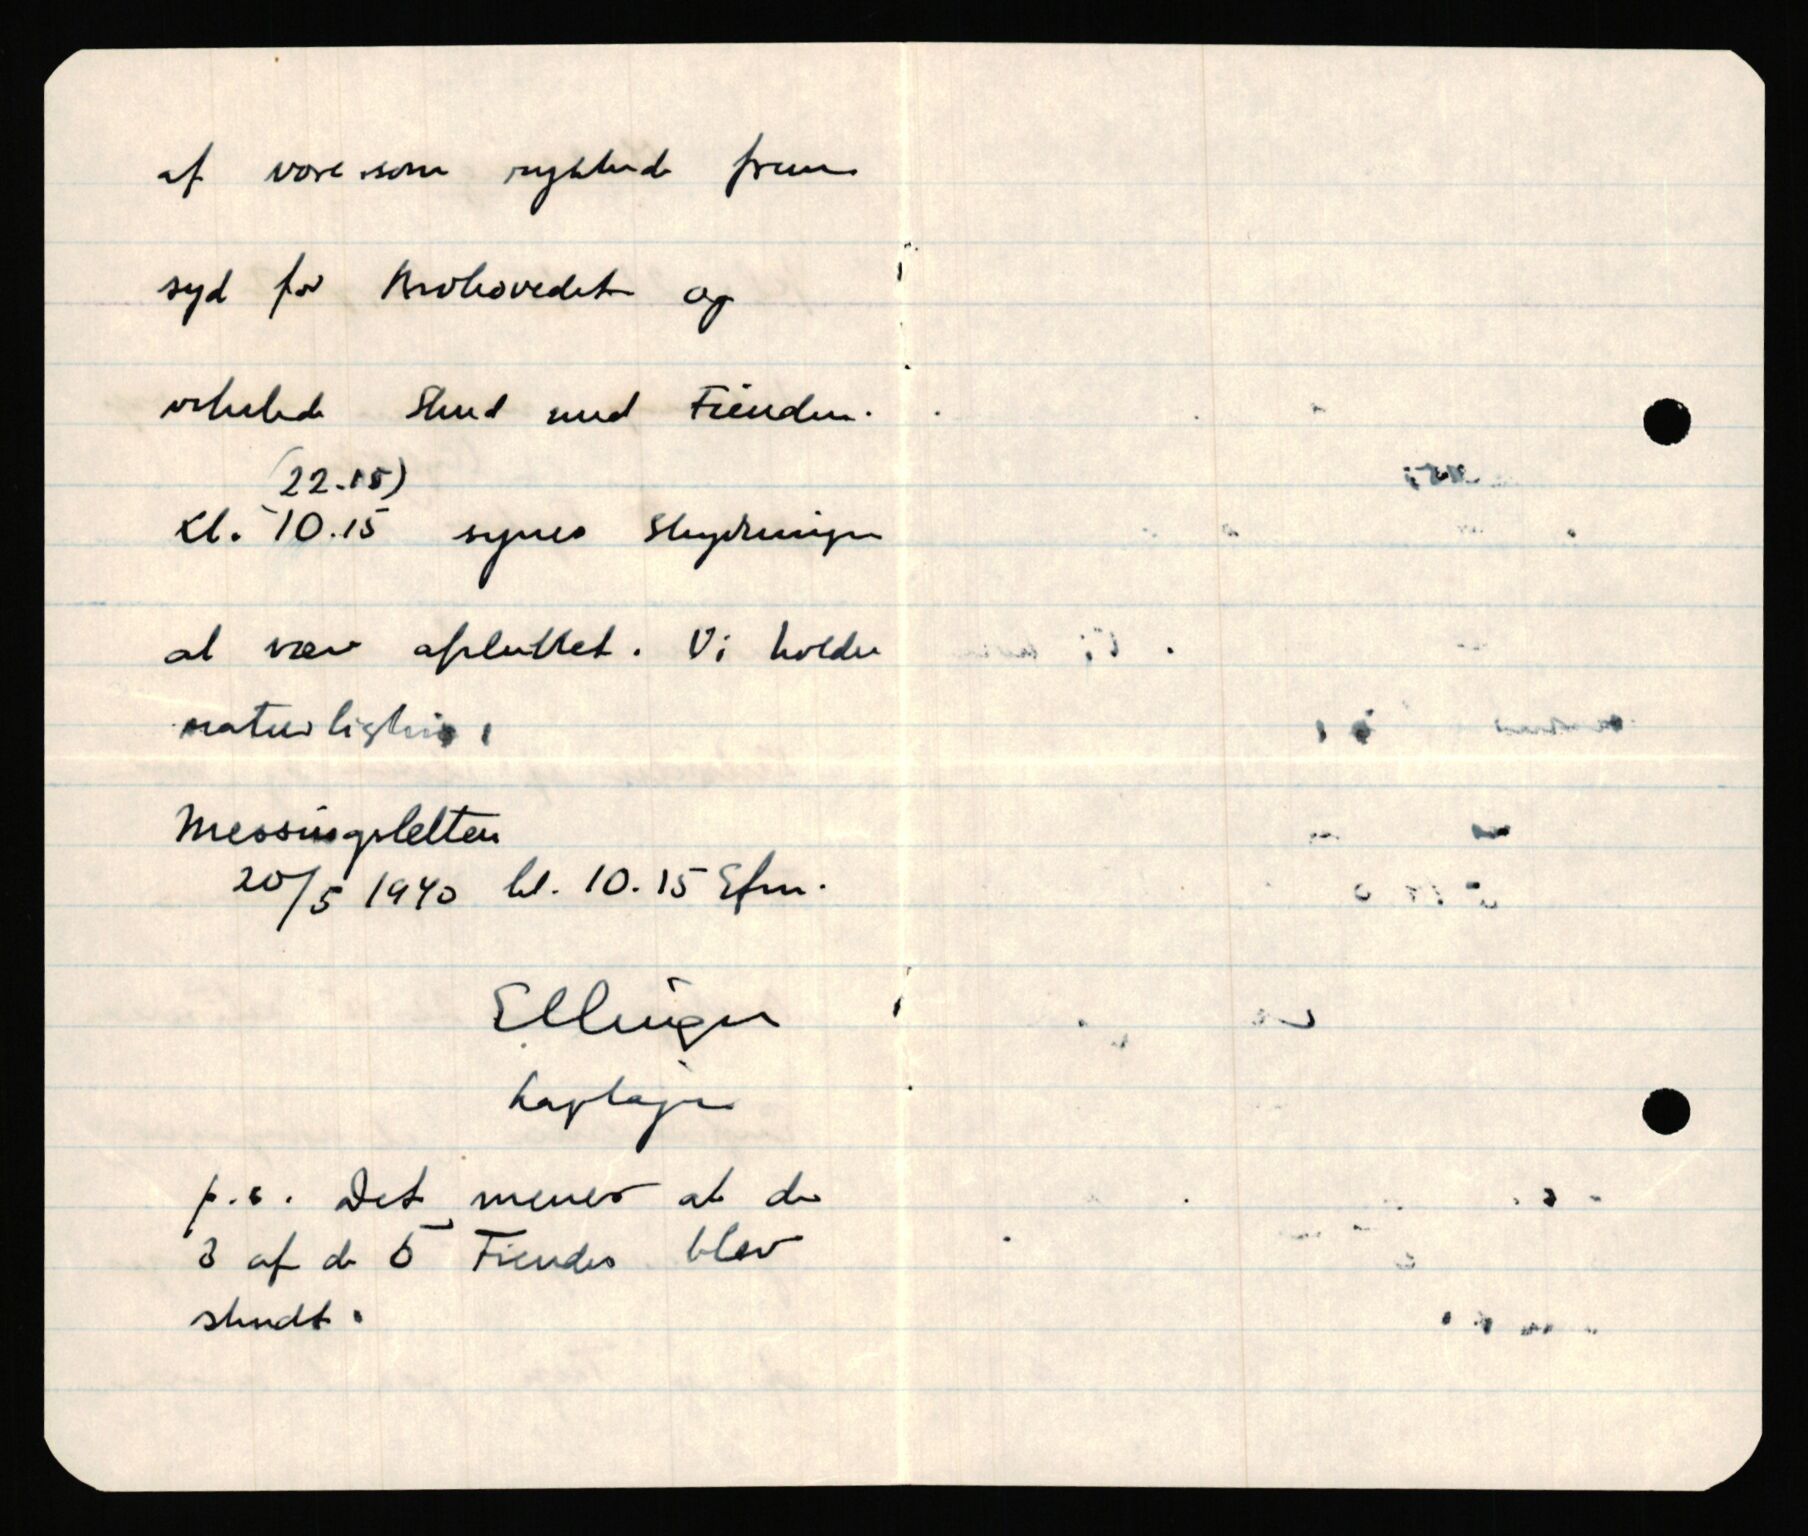 af vore som rykkede frem
syd for Brohovedet og
vekslede Skud med Fienden.
(22.15)
Kl. 10.15 synes Skydningen
at være afsluttet. Vi holder
naturligvis,
Messingsletten
20/5 1940 kl. 10.15 Efm.
Ellinger
kaptajn
p.s. Det menes at de
3 af de 5 Fiender blev
skudt.